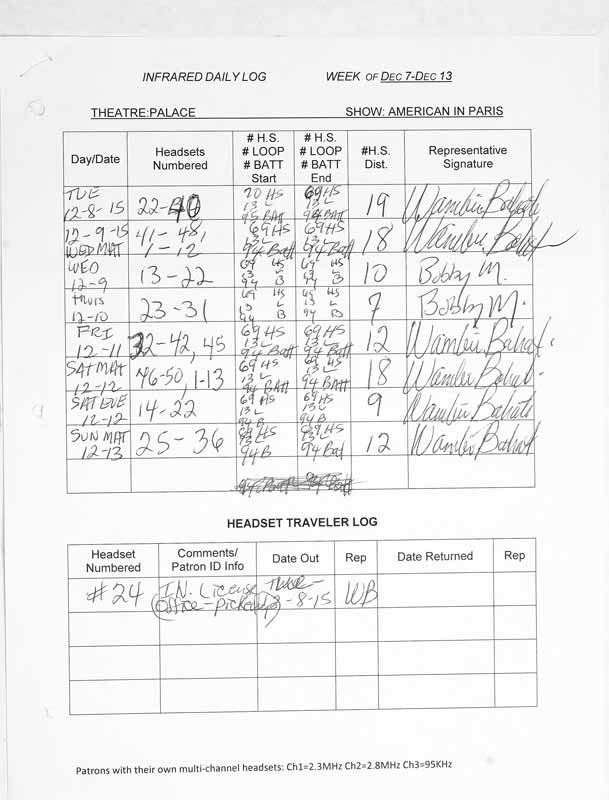 INFRARED DAILY LOG WEEK OF DEC 7-DEC 13
THEATRE:PALACE SHOW: AMERICAN IN PARIS
Day/Date Headsets Numbered # H.S. # LOOP # BATT Start # H.S. # LOOP # BATT End #H.S. Dist. Representative Signature
TUE 12-8-15 22-40 70 HS 13 L 95 BATT 69 HS 13 L 94 BATT 19 Wambui Bahati
12-9-15 WED MAT 41-48, 1-12 69 HS 13 L 94 Batt 69 HS 13 L 94 Batt 18 Wambui Bahati
WED 12-9 13-22 69 HS 13 L 94 B 69 HS 13 L 94 B 10 Bobby M.
THURS 12-10 23-31 69 HS 13 L 94 B 69 HS 13 L 94 B 7 Bobby M.
FRI 12-11 32-42, 45 69 HS 13 L 94 Batt 69 HS 13 L 94 Batt 12 Wambui Bahati
SAT MAT 12-12 46-50, 1-13 69 HS 13 L 94 BATT 69 HS 13 L 94 BATT 18 Wambui Bahati
SAT EVE 12-12 14-22 69 HS 13 L 94 B 69 HS 13 L 94 B 9 Wambui Bahati
SUN MAT 12-13 25-36 69 HS 13 L 94 B 69 HS 13 L 94 Bat 12 Wambui Bahati
HEADSET TRAVELER LOG
Headset Numbered Comments/ Patron ID Info Date Out Rep Date Returned Rep
#24 IN. License office-pickup 12-8-15 WB
Patrons with their own multi-channel headsets: Ch1=2.3MHz Ch2=2.8MHz Ch3=95KHz